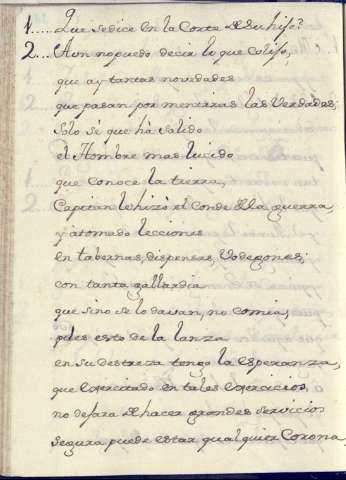 1.... Que se dice en la Corte de Su hijo?
2.... Aun no puedo decir lo que colijo,
que ay tantas novedades
que pasan por mentiras las Verdades;
Solo sé que há salido
el Hombre mas lucido
1.... que conoce la tierra,
2.... Capitan le hizo el Conde de la guerra,
y á tomado lecciones
en tabernas, dispensas, Vodegones;
con tanta gallardia
que sino se lo davan, no comia;
pues esto de la lanza
en su destreza tengo la esperanza,
que exercitado en tales exercicios,
no dejara de hacer grandes servicios
Segura puede estar qualquier Corona,